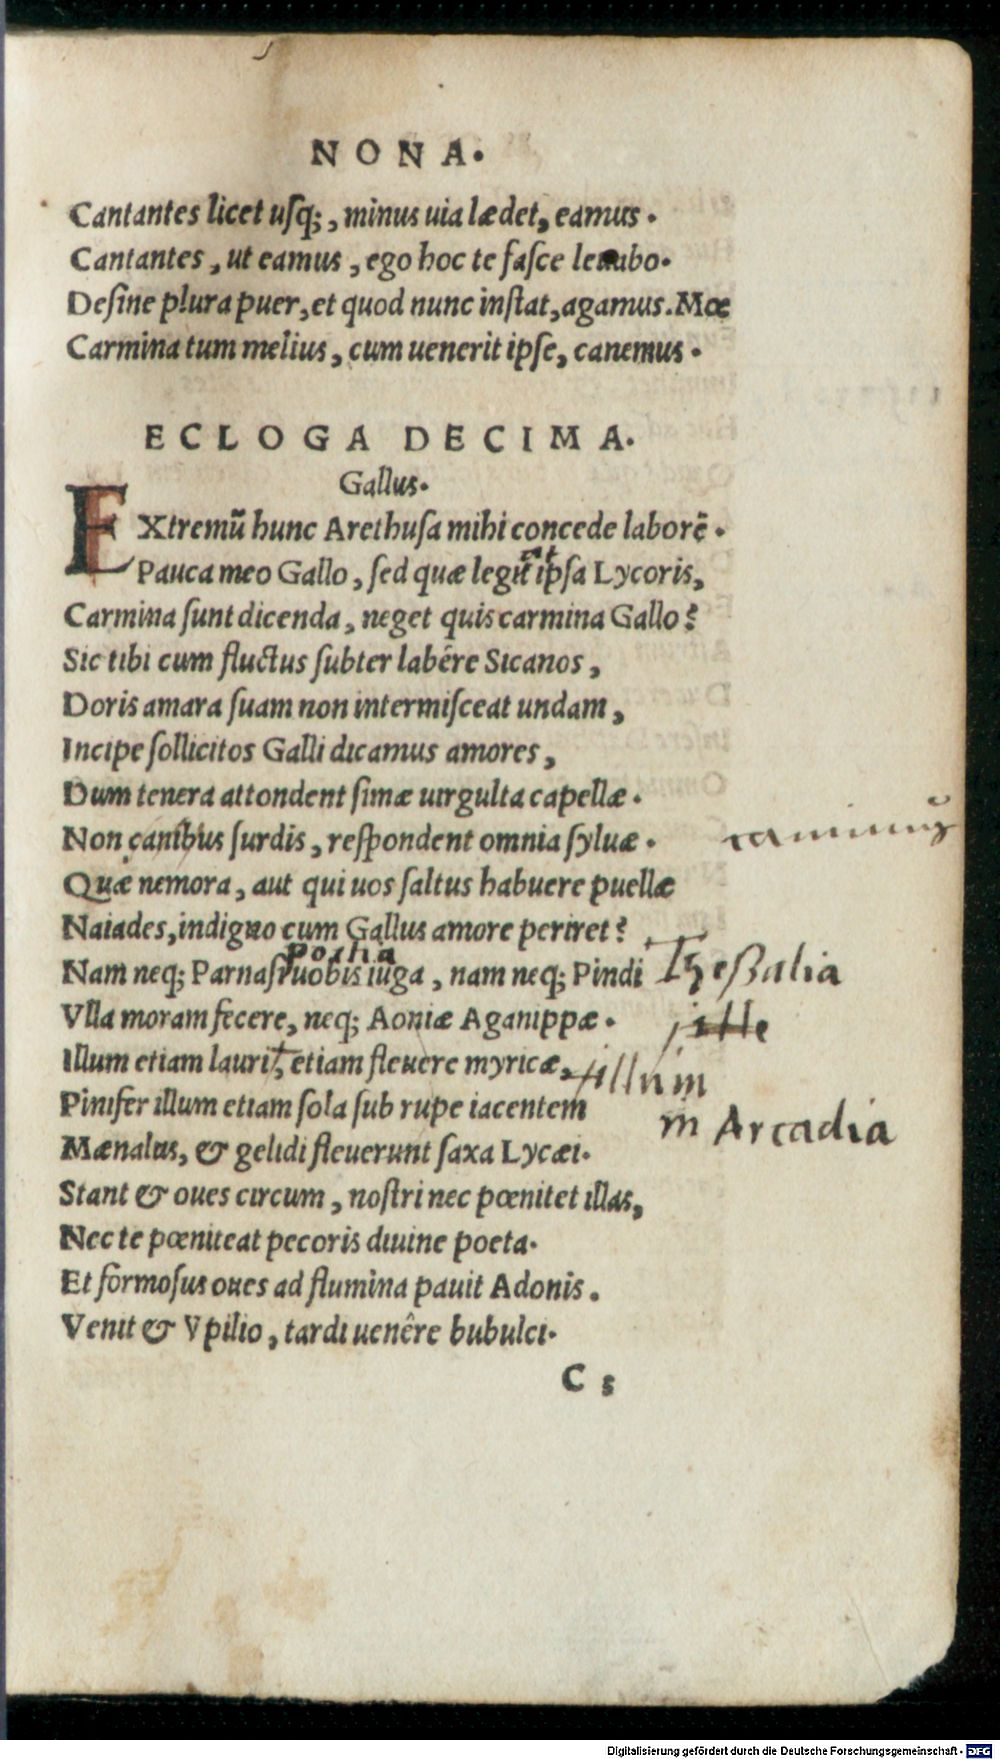 NONA.
Cantantes licet usq;, minus uia lædet, eamus.
Cantantes, ut eamus, ego hoc te fasce leuabo.
Desine plura puer, et quod nunc instat, agamus. Mœ
Carmina tum melius, cum uenerit ipse, canemus.
ECLOGA DECIMA.
Gallus.
EXtremũ hunc Arethusa mihi concede laborẽ.
at
Pauca meo Gallo, sed quæ legit ipsa Lycoris,
Carmina sunt dicenda, neget quis carmina Gallo?
Sic tibi cum fluctus subter labêre Sicanos,
Doris amara suam non intermisceat undam,
Incipe sollicitos Galli dicamus amores,
Dum tenera attondent simæ uirgulta capellæ.
Non canibus surdis, respondent omnia syluæ. canimuꝰ
Quæ nemora, aut qui uos saltus habuere puellæ
Naiades, indigno cum Gallus amore periret?
Nam neq; Parnassi uobis iuga, nam neq; Pindi Theßalia
Vlla moram fecere, neq; Aoniæ Aganippæ. ille
Illum etiam lauri, etiam fleuere myricæ, illum
Pinifer illum etiam sola sub rupe iacentem in Arcadia
Mænalus, & gelidi fleuerunt saxa Lycæi.
Stant & oues circum, nostri nec pœnitet illas,
Nec te pœniteat pecoris diuine poeta.
Et formosus oues ad flumina pauit Adonis.
Venit & Vpilio, tardi uenêre bubulci.
C 5
Digitalisierung gefördert durch die Deutsche Forschungsgemeinschaft - DFG